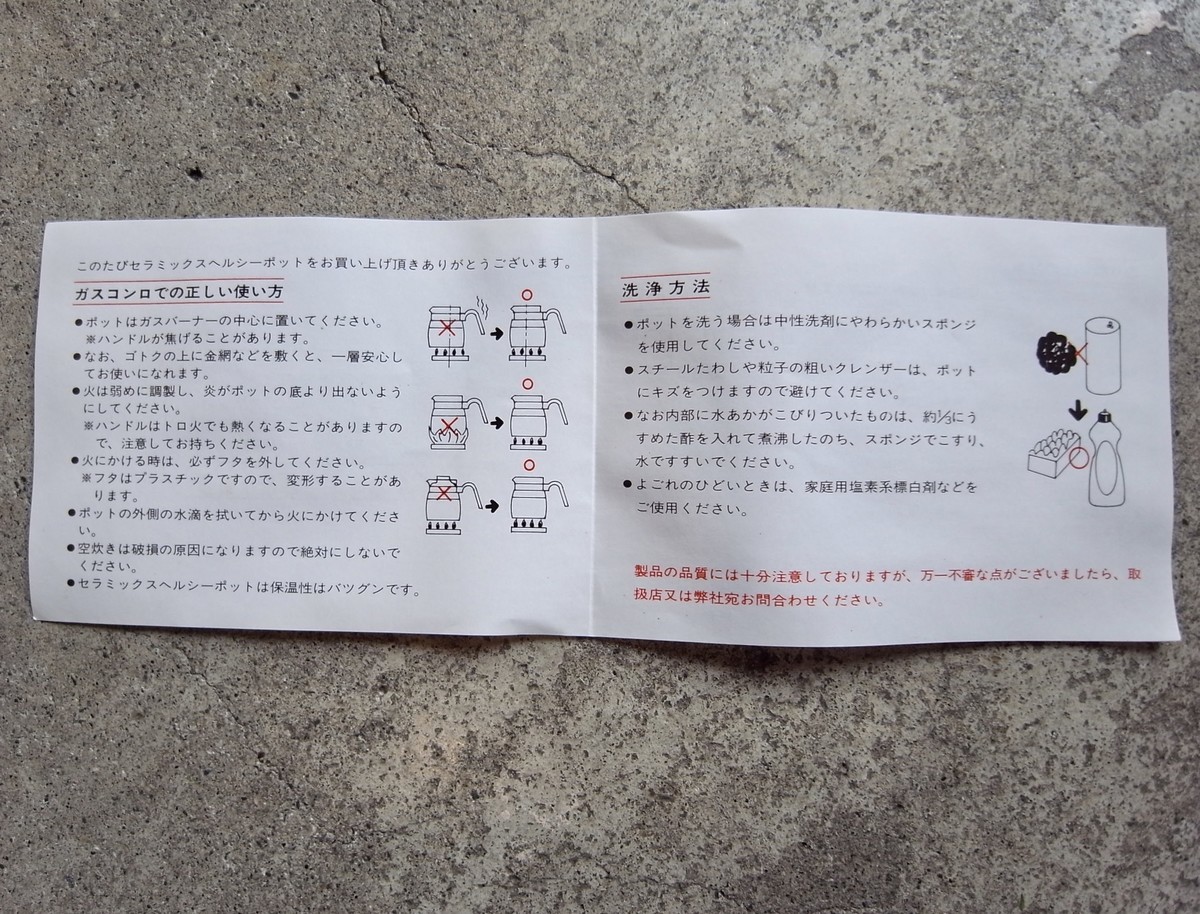 このたびセラミックスヘルシーポットをお買い上げ頂きありがとうございます。
ガスコンロでの正しい使い方
●ポットはガスバーナーの中心に置いてください。
※ハンドルが焦げることがあります。
●なお、ゴトクの上に金網などを敷くと、一層安心し
てお使いになれます。
●火は弱めに調製し、炎がポットの底より出ないよう
にしてください。
※ハンドルはトロ火でも熱くなることがありますの
で、注意してお持ちください。
●火にかける時は、必ずフタを外してください。
※フタはプラスチックですので、変形することがあ
ります。
●ポットの外側の水滴を拭いてから火にかけてくださ
い。
●空炊きは破損の原因になりますので絶対にしないで
ください。
●セラミックスヘルシーポットは保温性はバツグンです。
洗浄方法
●ポットを洗う場合は中性洗剤にやわらかいスポンジ
を使用してください。
●スチールたわしや粒子の粗いクレンザーは、ポット
にキズをつけますので避けてください。
●なお内部に水あかがこびりついたものは、約1/3にう
すめた酢を入れて煮沸したのち、スポンジでこすり、
水ですすいでください。
●よごれのひどいときは、家庭用塩素系標白剤などを
ご使用ください。
製品の品質には十分注意しておりますが、万一不審な点がございましたら、取
扱店又は弊社宛お問合わせください。